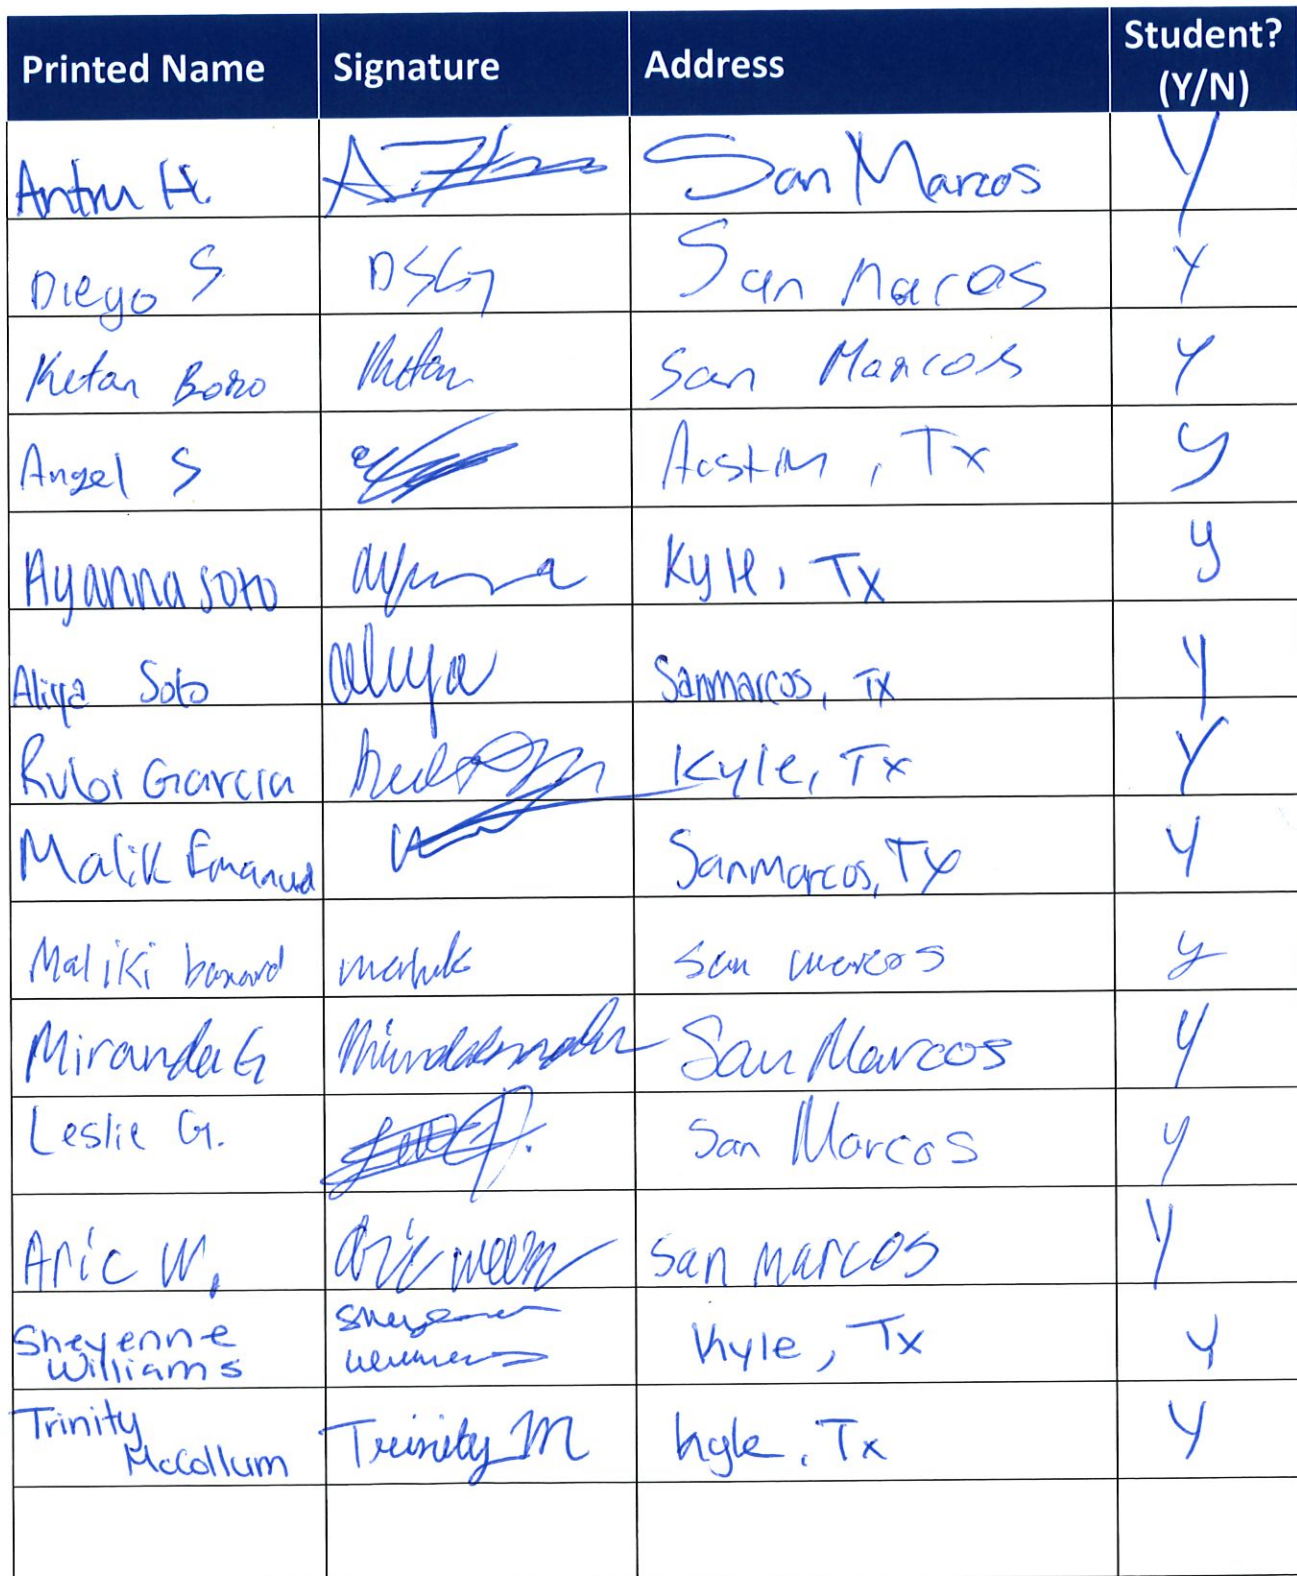 Printed Name Signature Address Student? (Y/N)
Antru H. San Marcos Y
Diego S San Marcos Y
Ketan Boro Ketan San Marcos Y
Angel S Austin, Tx y
Ayanna Soto Kyle, Tx y
Aliya Soto aliya Sanmarcos, TX Y
Rubi Garcia Kyle, Tx Y
Malik Emanuel Sanmarcos, TX Y
Maliki san marcos y
Miranda G San Marcos y
Leslie G. San Marcos y
Aric W. aric San marcos Y
Sheyenne Williams Kyle, Tx Y
Trinity McCollum Trinity M kyle, Tx Y